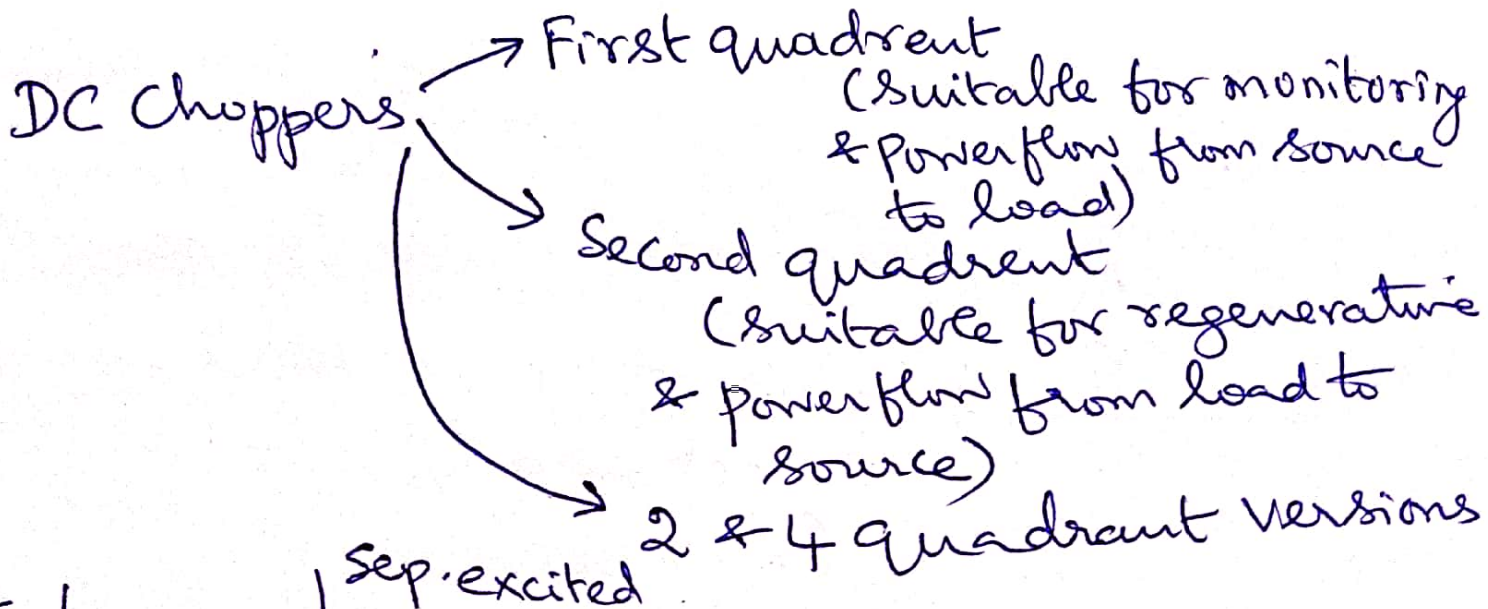 First quadrent
DC Choppers
(Suitable for monitoring
& Powerflow from source
to load)
Second quadrent
(Suitable for regenerative
& powerflow from load to
source)
2 & 4 quadrant versions
Sep. excited